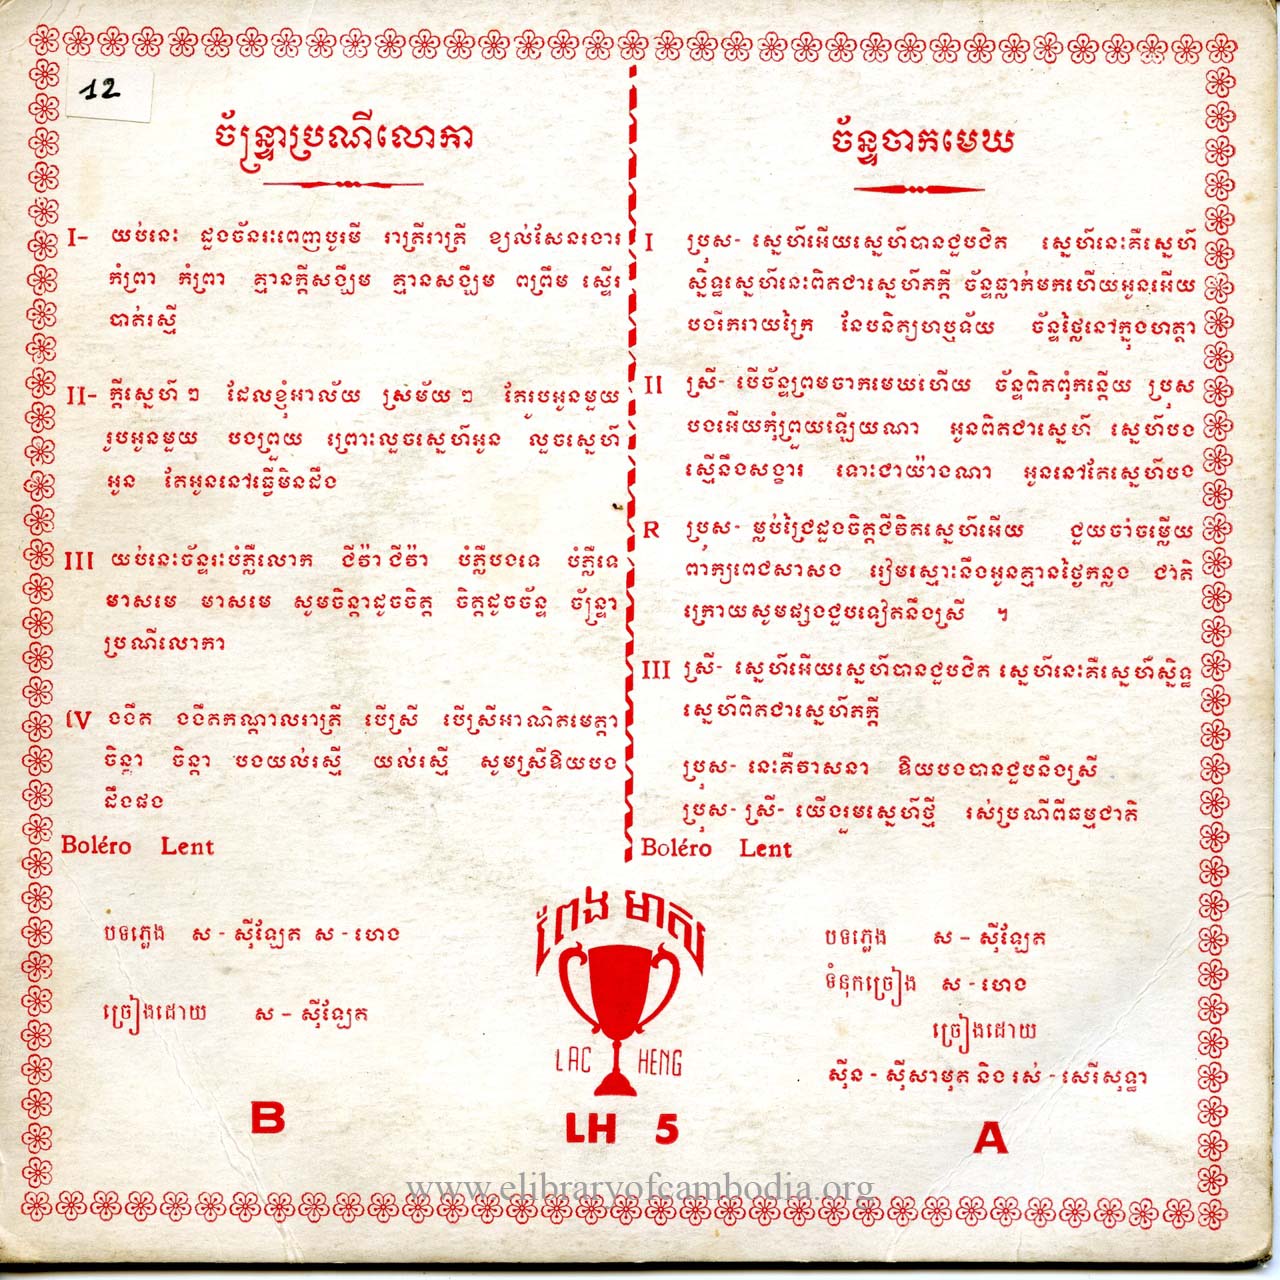 12
ច័ន្ទ្រាប្រណីលោកា
I- យប់នេះ ដួងច័នរះពេញបូរមី រាត្រីរាត្រី ខ្យល់សែនរងារ
កំព្រា កំព្រា គ្មានក្ដីសង្ឃឹម គ្មានសង្ឃឹម ពព្រឹម ស្ទើរ
បាត់រស្មី
II- ក្ដីស្នេហ៍ ៗ ដែលខ្ញុំអាល័យ ស្រម័យ ៗ តែរូបអូនមួយ
រូបអូនមួយ បងព្រួយ ព្រោះលួចស្នេហ៍អូន លួចស្នេហ៍
អូន តែអូននៅធ្វើមិនដឹង
III យប់នេះច័ន្ទរះបំភ្លឺលោក ជីវ៉ា ជីវ៉ា បំភ្លឺបងទេ បំភ្លឺទេ
មាសមេ មាសមេ សូមចិន្ដាដូចចិត្ត ចិត្តដូចច័ន្ទ ច័ន្ទ្រា
ប្រណីលោកា
IV ងងឹត ងងឹតកណ្ដាលរាត្រី បើស្រី បើស្រីអាណិតមេត្តា
ចិន្ដា ចិន្ដា បងយល់រស្មី យល់រស្មី សូមស្រីឱយបង
ដឹងផង
Boléro Lent
បទភ្លេង ស - ស៊ីឡែត ស - ហេង
ច្រៀងដោយ ស - ស៊ីឡែត
B
ច័ន្ទចាកមេឃ
I ប្រុស- ស្នេហ៍អើយស្នេហ៍បានជួបជិត ស្នេហ៍នេះគឺស្នេហ៍
ស្និទ្ធស្នេហ៍នេះពិតជាស្នេហ៍ភក្ដី ច័ន្ទធ្លាក់មកហើយអូនអើយ
បងរីករាយក្រៃ នែបនិត្យហឫទ័យ ច័ន្ទថ្លៃនៅក្នុងហត្ថា
II ស្រី- បើច័ន្ទព្រមចាកមេឃហើយ ច័ន្ទពិតពុំកន្តើយ ប្រុស
បងអើយកុំព្រួយឡើយណា អូនពិតជាស្នេហ៍ ស្នេហ៍បង
ស្មើនឹងសង្ខារ ទោះជាយ៉ាងណា អូននៅតែស្នេហ៍បង
R ប្រុស- ម្លប់ជ្រៃដួងចិត្តជីវិតស្នេហ៍អើយ ជួយចាំចម្លើយ
ពាក្យពេជសាសង រៀមស្មោះនឹងអូនគ្មានថ្ងៃកន្លង ជាតិ
ក្រោយសូមផ្សងជួបទៀតនឹងស្រី ។
III ស្រី- ស្នេហ៍អើយស្នេហ៍បានជួបជិត ស្នេហ៍នេះគឺស្នេហ៍ស្និទ្ធ
ស្នេហ៍ពិតជាស្នេហ៍ភក្ដី
ប្រុស- នេះគឺវាសនា ឱយបងបានជួបនឹងស្រី
ប្រុស- ស្រី- យើងរួមស្នេហ៍ថ្មី រស់ប្រណីពីធម្មជាតិ
Boléro Lent
បទភ្លេង ស – ស៊ីឡែត
ទំនុកច្រៀង ស - ហេង
ច្រៀងដោយ
ស៊ីន - ស៊ីសាមុត និង រស់ - សេរីសុទ្ធា
A
ពែង មាស
LAC HENG
LH 5
www.elibraryofcambodia.org